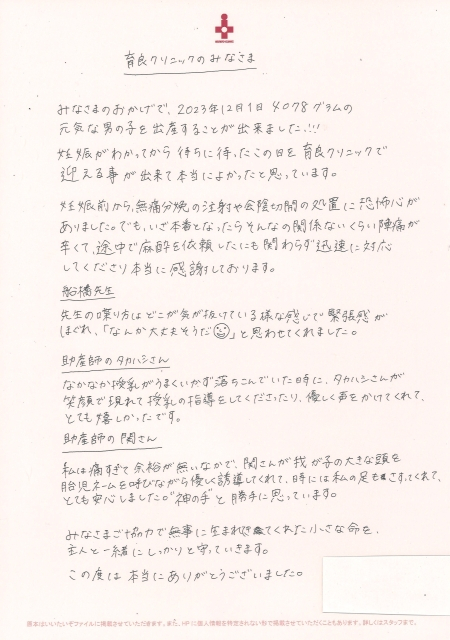 育良クリニックのみなさま
みなさまのおかげで、2023年12月1日 4078グラムの
元気な男の子を出産することが出来ました!!!
妊娠がわかってから待ちに待ったこの日を育良クリニックで
迎える事が出来て本当によかったと思っています。
妊娠前から、無痛分娩の注射や会陰切開の処置に恐怖心が
ありました。でも、いざ本番となったらそんなの関係ないくらい陣痛が
辛くて、途中で麻酔を依頼したにも関わらず迅速に対応
してくださり本当に感謝しております。
船橋先生
先生の喋り方はどこか気が抜けている様な感じで緊張感が
ほぐれ、「なんか大丈夫そうだ☺」と思わせてくれました。
助産師のタカハシさん
なかなか授乳がうまくいかず落ちこんでいた時に、タカハシさんが
笑顔で現れて授乳の指導をしてくださったり、優しく声をかけてくれて、
とても嬉しかったです。
助産師の関さん
私は痛すぎて余裕が無いなかで、関さんが我が子の大きな頭を
胎児ネームを呼びながら優しく誘導してくれて、時には私の足もさすってくれて、
とても安心しました。"神の手"と勝手に思っています。
みなさまご協力で無事に生まれてきてくれた小さな命を、
主人と一緒にしっかりと守っていきます。
この度は本当にありがとうございました。
原本はいいたいぞファイルに掲載させていただきます。また、HPに個人情報を特定されない形で掲載させていただくこともあります。詳しくはスタッフまで。